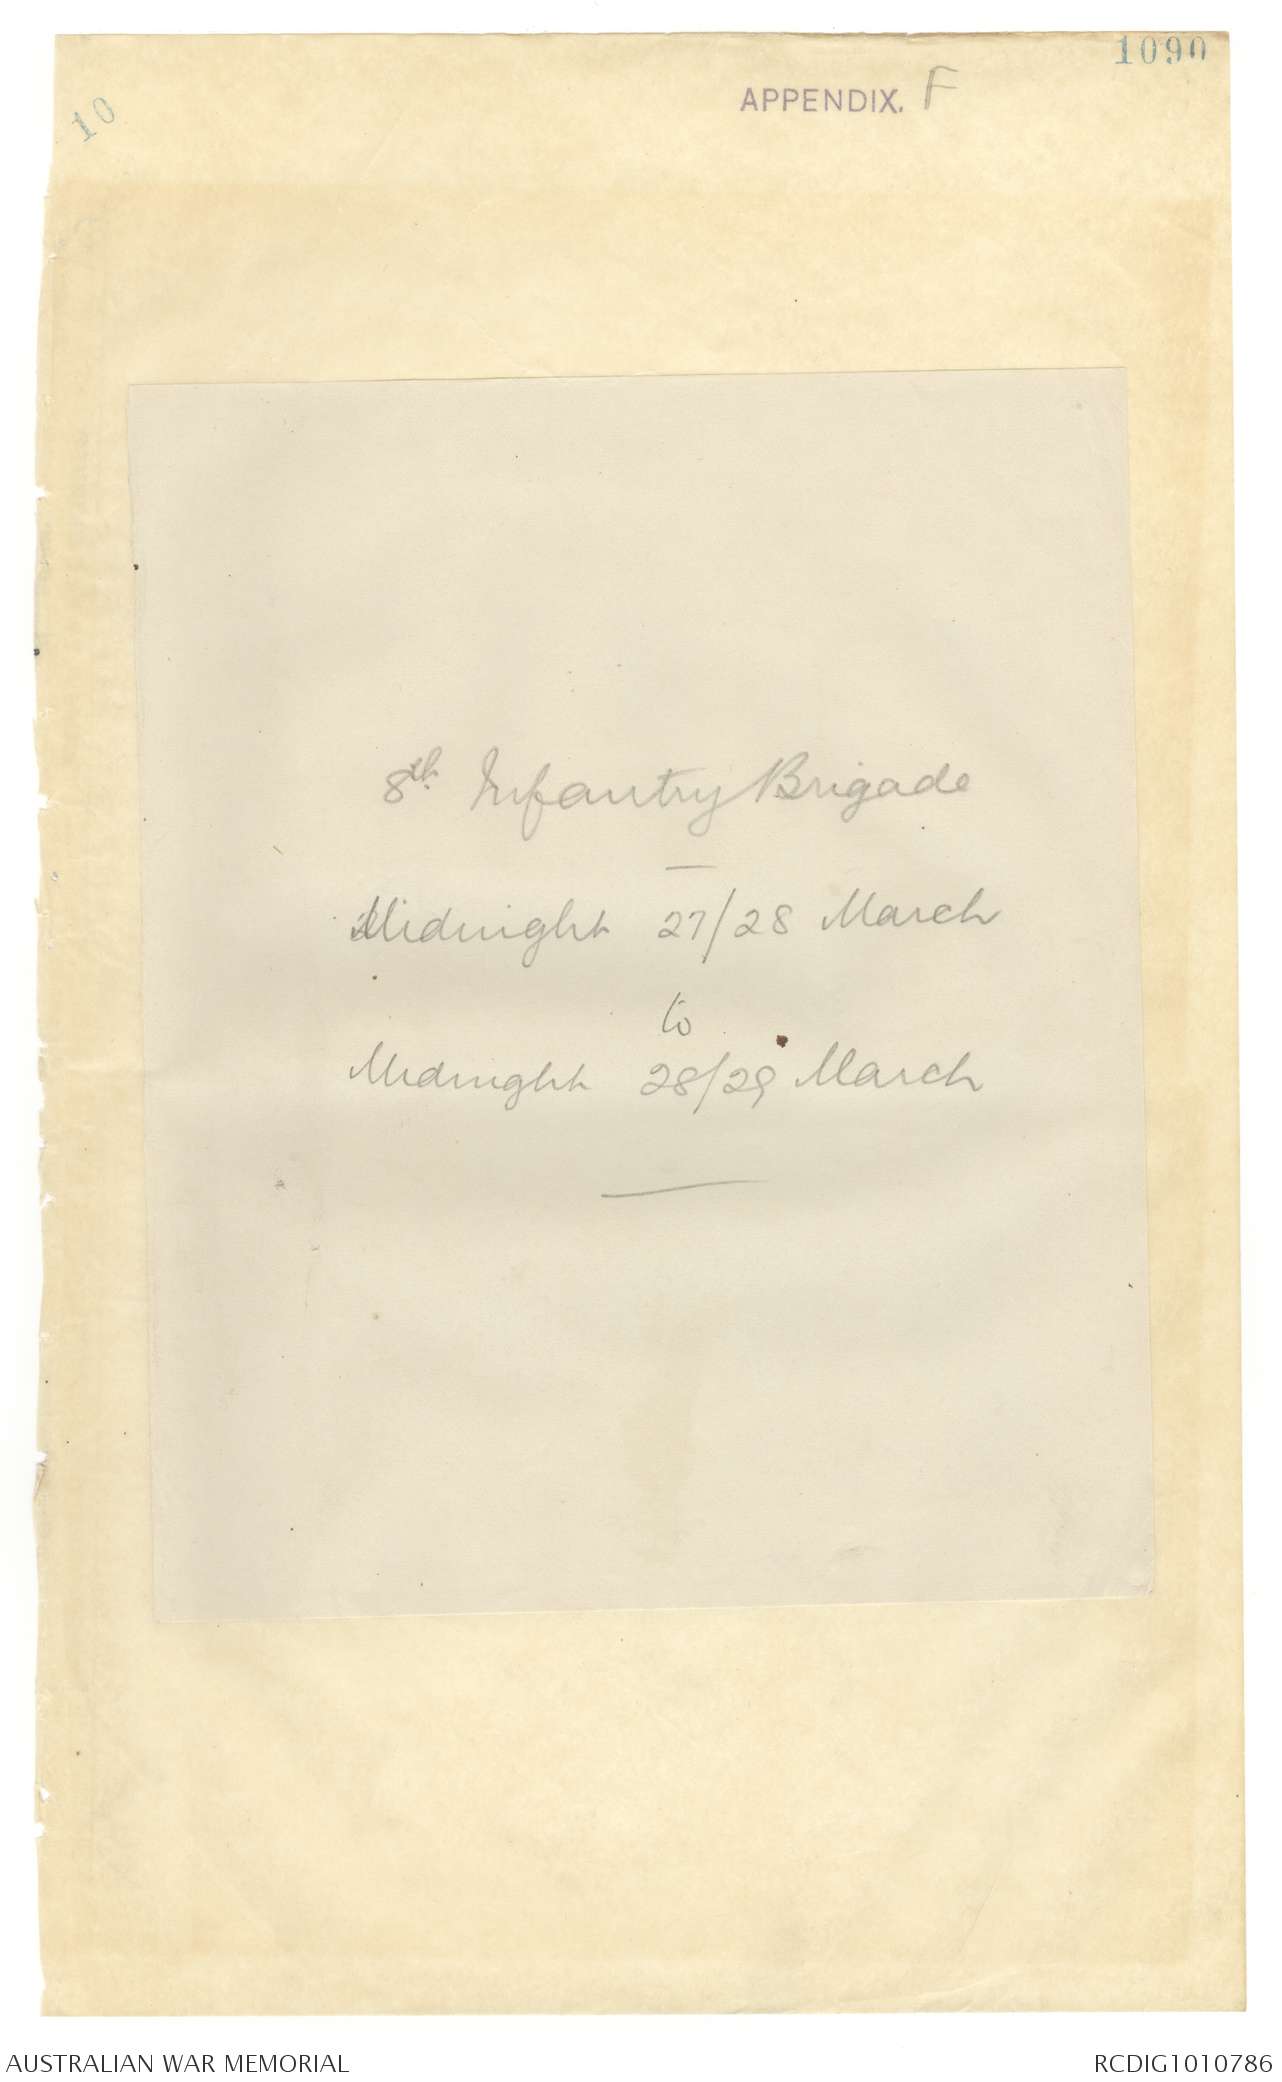 1090
10
APPENDIX. F
8th Infantry Brigade
—
Midnight 27/28 March
to
Midnight 28/29 March
AUSTRALIAN WAR MEMORIAL
RCDIG1010786